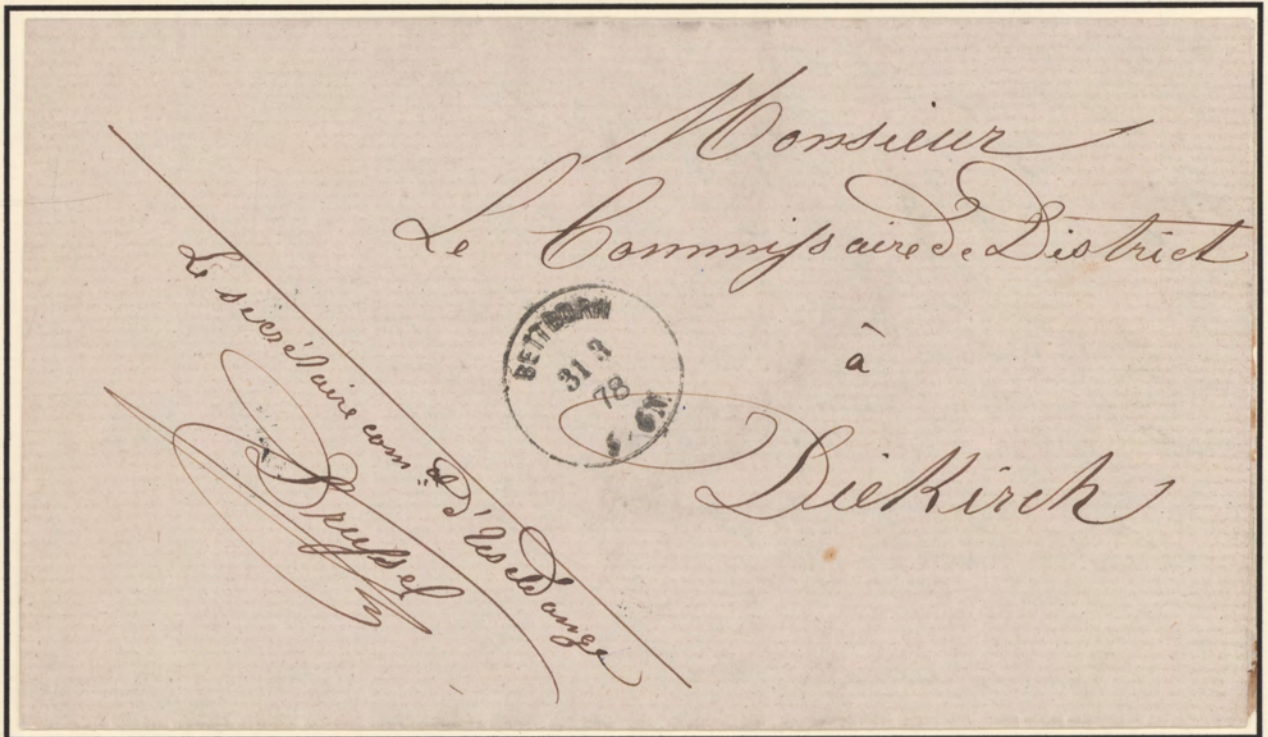 Monsieur
Le Commissaire de District
à
Diekirch
BETTBORN
31 3
78
Le secrétaire com.al d'Useldange